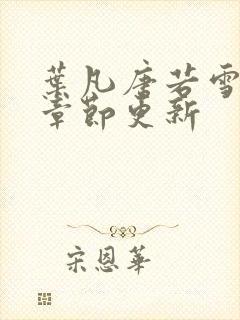 葉凡唐若雪
章節更新
宋恩華